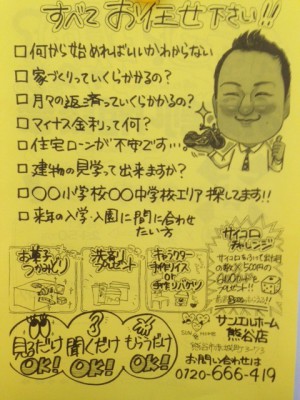 すべてお任せ下さい!!
□何から始めればいいかわからない
□家づくりっていくらかかるの?
□月々の返済っていくらかかるの?
□マイナス金利って何?
□住宅ローンが不安です…
□建物の見学って出来ますか?
□〇〇小学校〇〇中学校エリア探してます!!
□来年の入学入園に間に合わせ
たい方
お菓子
つかみどり
洗剤
プレゼント
キャラクター
手作り
or
サイコロ
チャレンジ
見るだけ
OK!
聞くだけ
OK!
もらうだけ
OK!
SUN HOME
サンエルホーム
熊谷店
お問い合わせは
0720-666-419